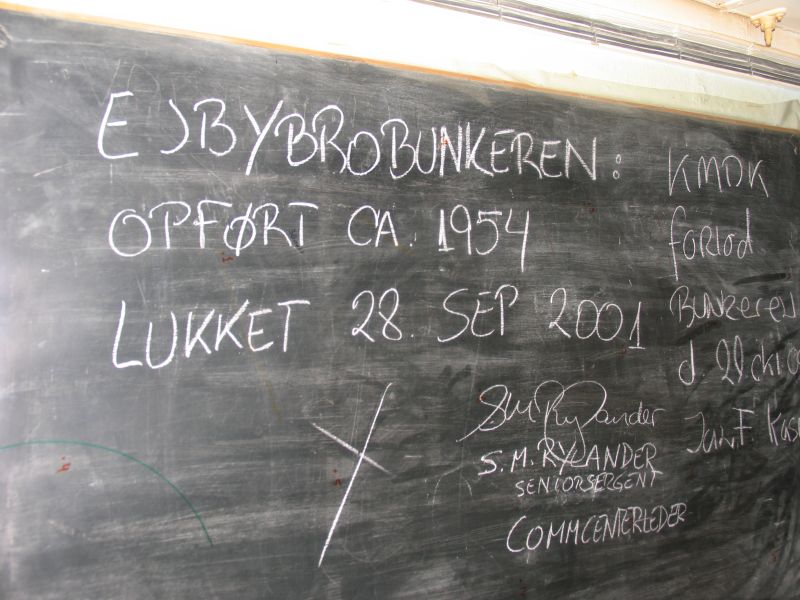 EJBYBROBUNKEREN:
OPFØRT CA. 1954
LUKKET 28. SEP 2001
SM Rylander
S.M. RYLANDER
SENIORSERGENT
COMMCENTERLEDER
KMDK
forlod
Bunkeren
d.
Jan F.